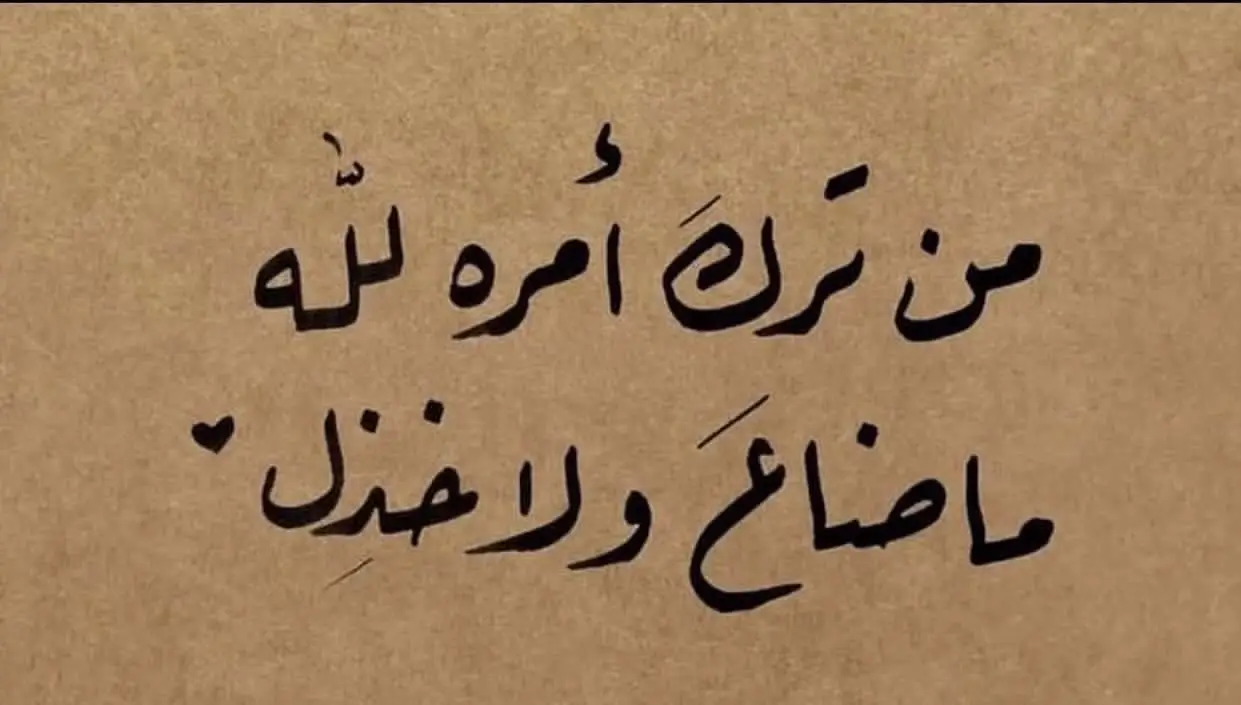 من تركَ أمره للّٰه
ما ضاعَ ولا خذِل